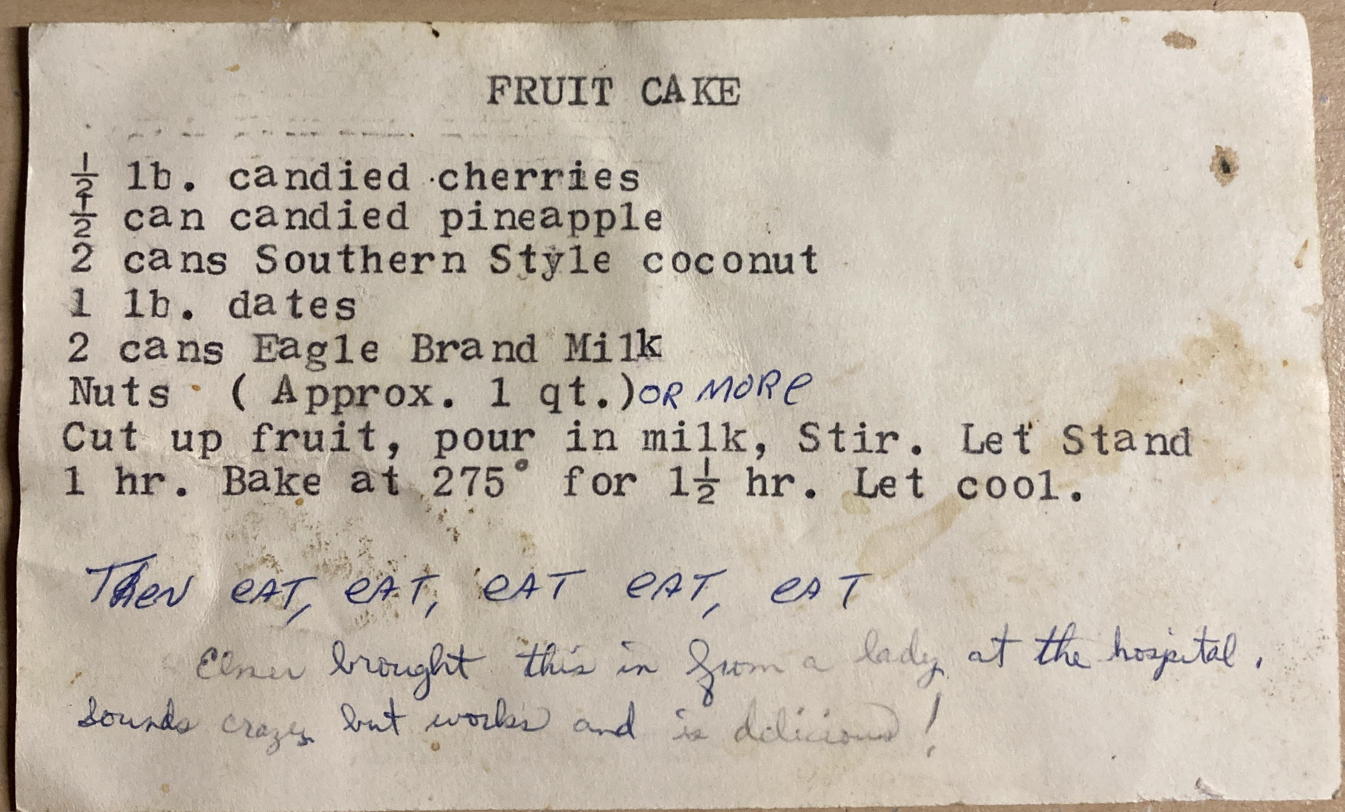 FRUIT CAKE
½ lb. candied cherries
½ can candied pineapple
2 cans Southern Style coconut
1 lb. dates
2 cans Eagle Brand Milk
Nuts (Approx. 1 qt.) OR MORE
Cut up fruit, pour in milk, Stir. Let Stand
1 hr. Bake at 275° for 1½ hr. Let cool.
THEN EAT, EAT, EAT EAT, EAT
Elmer brought this in from a lady at the hospital.
Sounds crazy but works and is delicious!